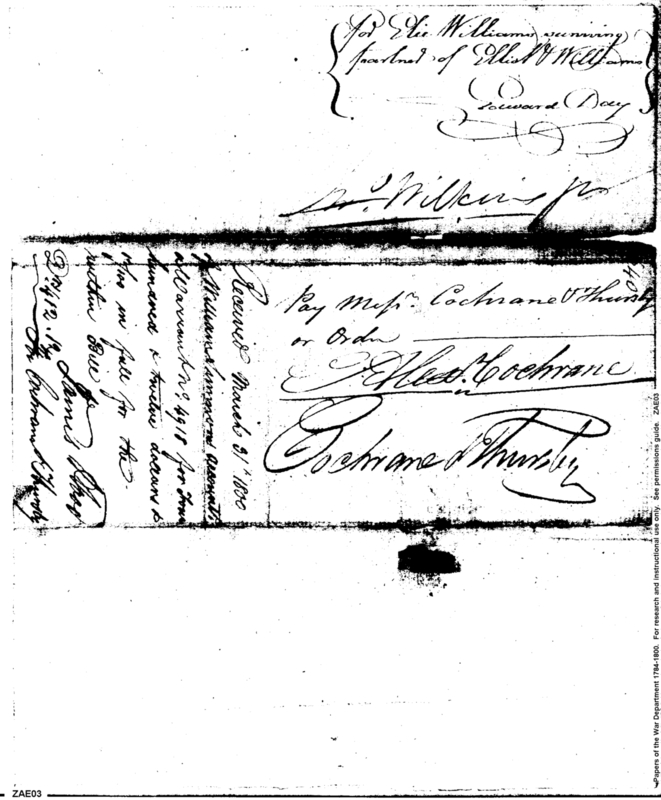 for Elie Williams surviving
partner of Elliot & Williams
Edward Day
Jno. Wilkins Jr
40
Pay Messrs. Cochrane & Thursby
or Order
Alexr. Cochrane
Cochrane & Thursby
Received March 31st 1800
of William Simmons accountt
a Warrant No. 4918 for Four
hundred & twelve dollars &
19/100 in full for the
within Bill
Ds 412.19 James
for Cochran & Thursby
ZAE03
Papers of the War Department 1784-1800. For research and instructional use only. See permissions guide. ZAE03